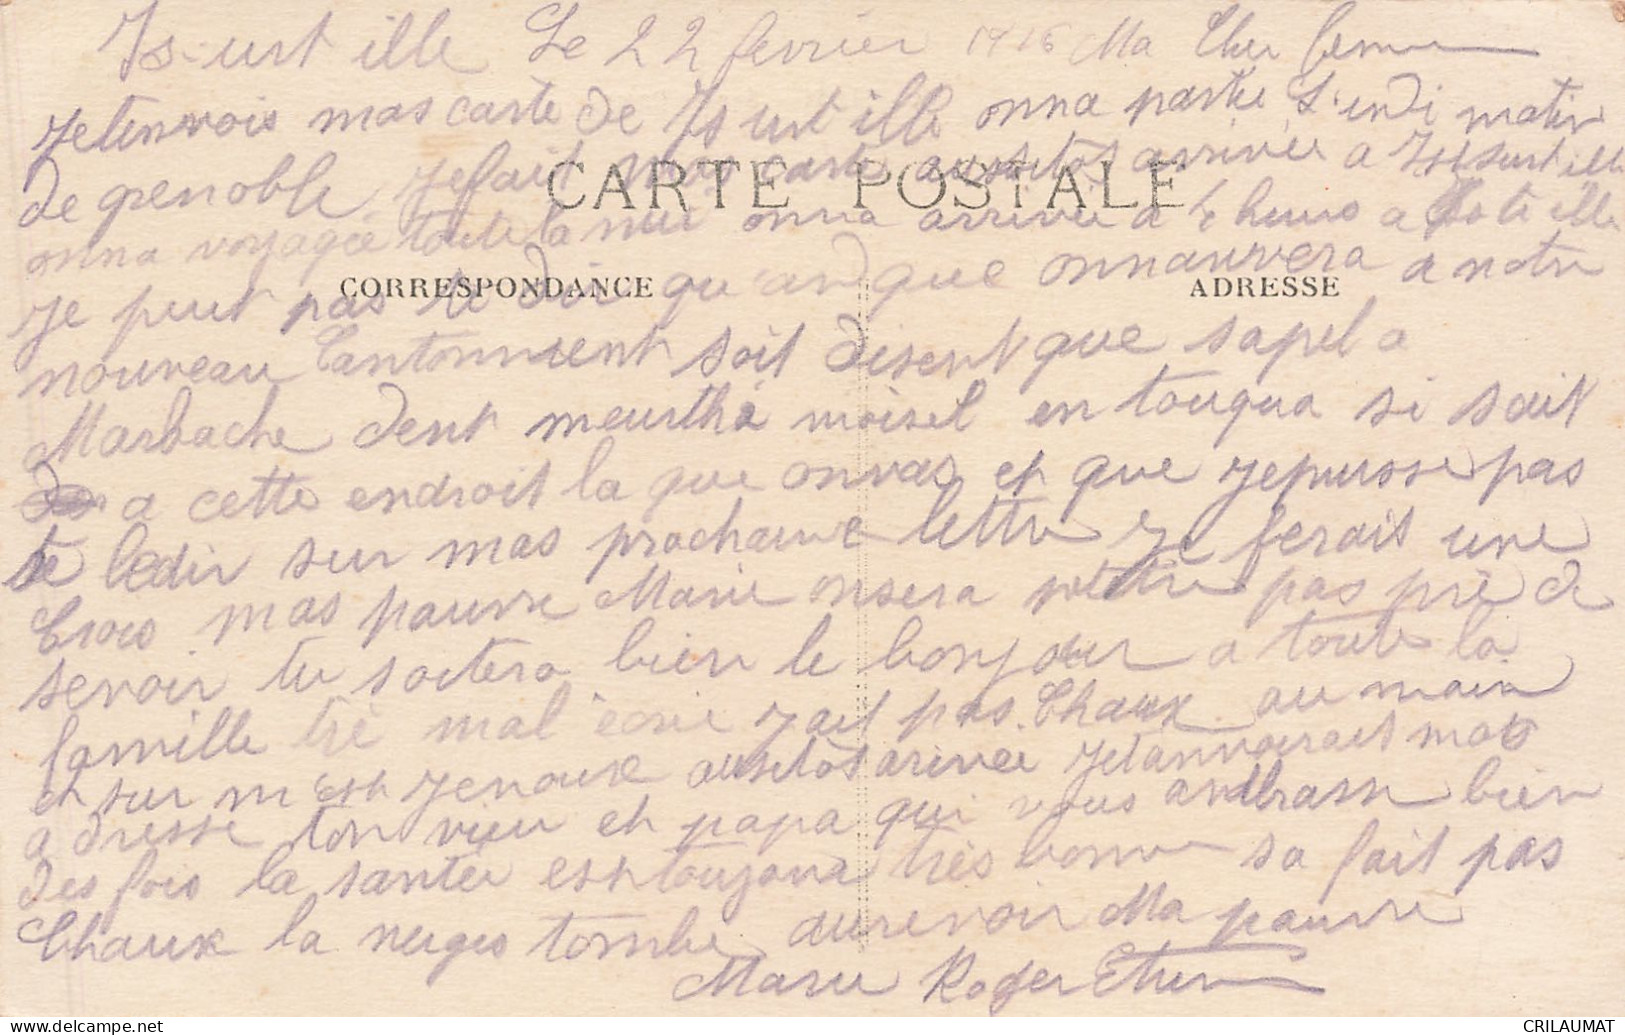 Is-urt ille Le 22 fevrier 1916 Ma Cher femme
Jetenvois mas carte de Is urt ille onna partie Lundi matin
de grenoble jefait mas carte ausitôs arrivée a Is surt ille
CARTE POSTALE
onna voyagée toute la nui onna arrivée a heures a
je peut pas te dir quandque onnauvera a notre
CORRESPONDANCE
ADRESSE
nouveau Cantonnment soit disent que sapel a
Marbache dent meurthé moisel en touqua si sait
a cette endroit la que onvas et que jepuisse pas
te ledir sur mas prochaine lettre je ferais une
Crois mas pauvre Marie onsera pas prè de
sevoir tu soitera bien le bonjour a toute la
famille trè mal écrie jait pas Chaux au main
et sur m est jenoux ausitôs arivée jetanvoirait mas
adresse ton vieu et papa qui vous andbrasse bien
des fois la santée est toujoura très bonne sa fait pas
Chaux la neiges tombe aurevoir Ma pauvre
Marie Roger
CRILAUMAT